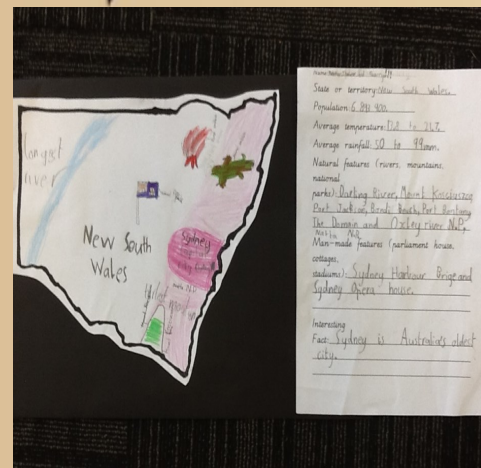 Longest
river
New South
Wales
Sydney
State or territory: New South Wales.
Population: 6 891 400.
Average temperature:
Average rainfall: 50 to 99mm.
Natural features (rivers, mountains,
national
parks): Darling River, Mount Kosciuszco
Port Jackson, Bondi Beach, Port Bontany
The Domain and Oxley river N.P.
Man-made features (parliament house,
cottages,
stadiums): Sydney Harbour Brige and
Sydney Opera house.
Interesting
Fact: Sydney is Australia's oldest
city.